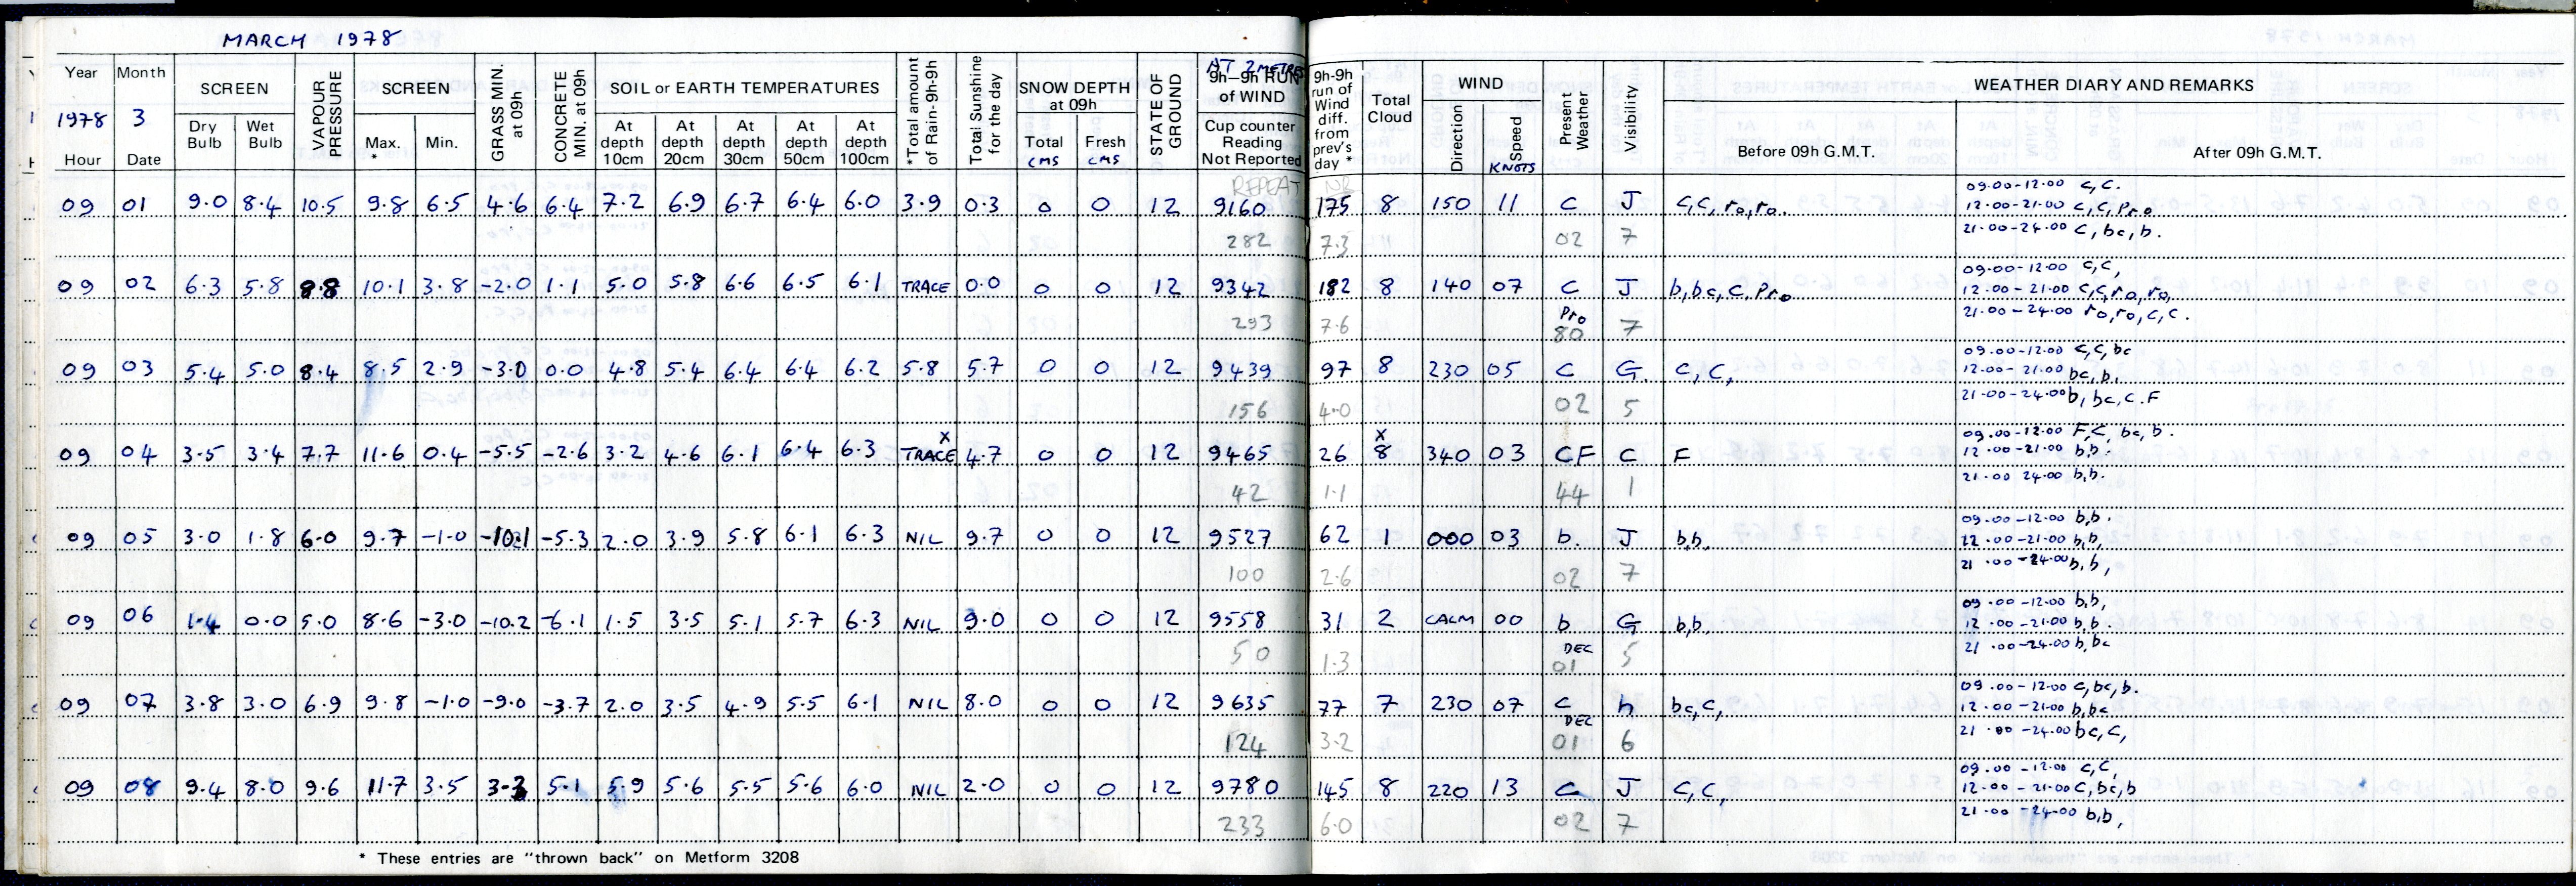 MARCH 1978
Year Month SCREEN VAPOUR PRESSURE SCREEN GRASS MIN. at 09h CONCRETE MIN. at 09h SOIL or EARTH TEMPERATURES *Total amount of Rain-9h-9h Total Sunshine for the day SNOW DEPTH at 09h STATE OF GROUND AT 2 METRES 9h-9h RUN of WIND 9h-9h run of Wind diff. from prev's day * Total Cloud WIND Present Weather Visibility WEATHER DIARY AND REMARKS
1978 3
Hour Date Dry Bulb Wet Bulb Max. * Min. At depth 10cm At depth 20cm At depth 30cm At depth 50cm At depth 100cm Total CMS Fresh CMS Cup counter Reading Not Reported Direction Speed KNOTS Before 09h G.M.T. After 09h G.M.T.
REPEAT NR
09 01 9.0 8.4 10.5 9.8 6.5 4.6 6.4 7.2 6.9 6.7 6.4 6.0 3.9 0.3 0 0 12 9160 175 8 150 11 C J c,c,ro,ro. 09.00-12.00 c,c.
12.00-21.00 c,c,pro
282 7.3 02 7 21.00-24.00 c,bc,b.
09 02 6.3 5.8 8.8 10.1 3.8 -2.0 1.1 5.0 5.8 6.6 6.5 6.1 TRACE 0.0 0 0 12 9342 182 8 140 07 C J b,bc,c,pro 09.00-12.00 c,c,
12.00-21.00 c,c,ro,ro,
293 7.6 Pro 80 7 21.00-24.00 ro,ro,c,c.
09 03 5.4 5.0 8.4 8.5 2.9 -3.0 0.0 4.8 5.4 6.4 6.4 6.2 5.8 5.7 0 0 12 9439 97 8 230 05 C G. c,c, 09.00-12.00 c,c,bc
12.00-21.00 bc,b,
156 4.0 02 5 21.00-24.00 b,bc,c.F
09 04 3.5 3.4 7.7 11.6 0.4 -5.5 -2.6 3.2 4.6 6.1 6.4 6.3 TRACE x 4.7 0 0 12 9465 26 x 8 340 03 CF C F 09.00-12.00 F,C, bc, b.
12.00-21.00 b,b.
42 1.1 44 1 21.00 24.00 b,b.
09 05 3.0 1.8 6.0 9.7 -1.0 -10.1 -5.3 2.0 3.9 5.8 6.1 6.3 NIL 9.7 0 0 12 9527 62 1 000 03 b. J b,b, 09.00-12.00 b,b.
12.00-21.00 b,b,
100 2.6 02 7 21.00-24.00 b,b,
09 06 1.4 0.0 5.0 8.6 -3.0 -10.2 -6.1 1.5 3.5 5.1 5.7 6.3 NIL 9.0 0 0 12 9558 31 2 CALM 00 b G b,b, 09.00-12.00 b,b,
12.00-21.00 b,b.
50 1.3 DEC 01 5 21.00-24.00 b,bc
09 07 3.8 3.0 6.9 9.8 -1.0 -9.0 -3.7 2.0 3.5 4.9 5.5 6.1 NIL 8.0 0 0 12 9635 77 7 230 07 C h bc,c, 09.00-12.00 c,bc,b.
12.00-21.00 b,bc
124 3.2 DEC 01 6 21.00-24.00 bc,c,
09 08 9.4 8.0 9.6 11.7 3.5 3.3 5.1 5.9 5.6 5.5 5.6 6.0 NIL 2.0 0 0 12 9780 145 8 220 13 C J c,c, 09.00-12.00 c,c,
12.00-21.00 c,bc,b
233 6.0 02 7 21.00-24.00 b,b,
* These entries are "thrown back" on Metform 3208